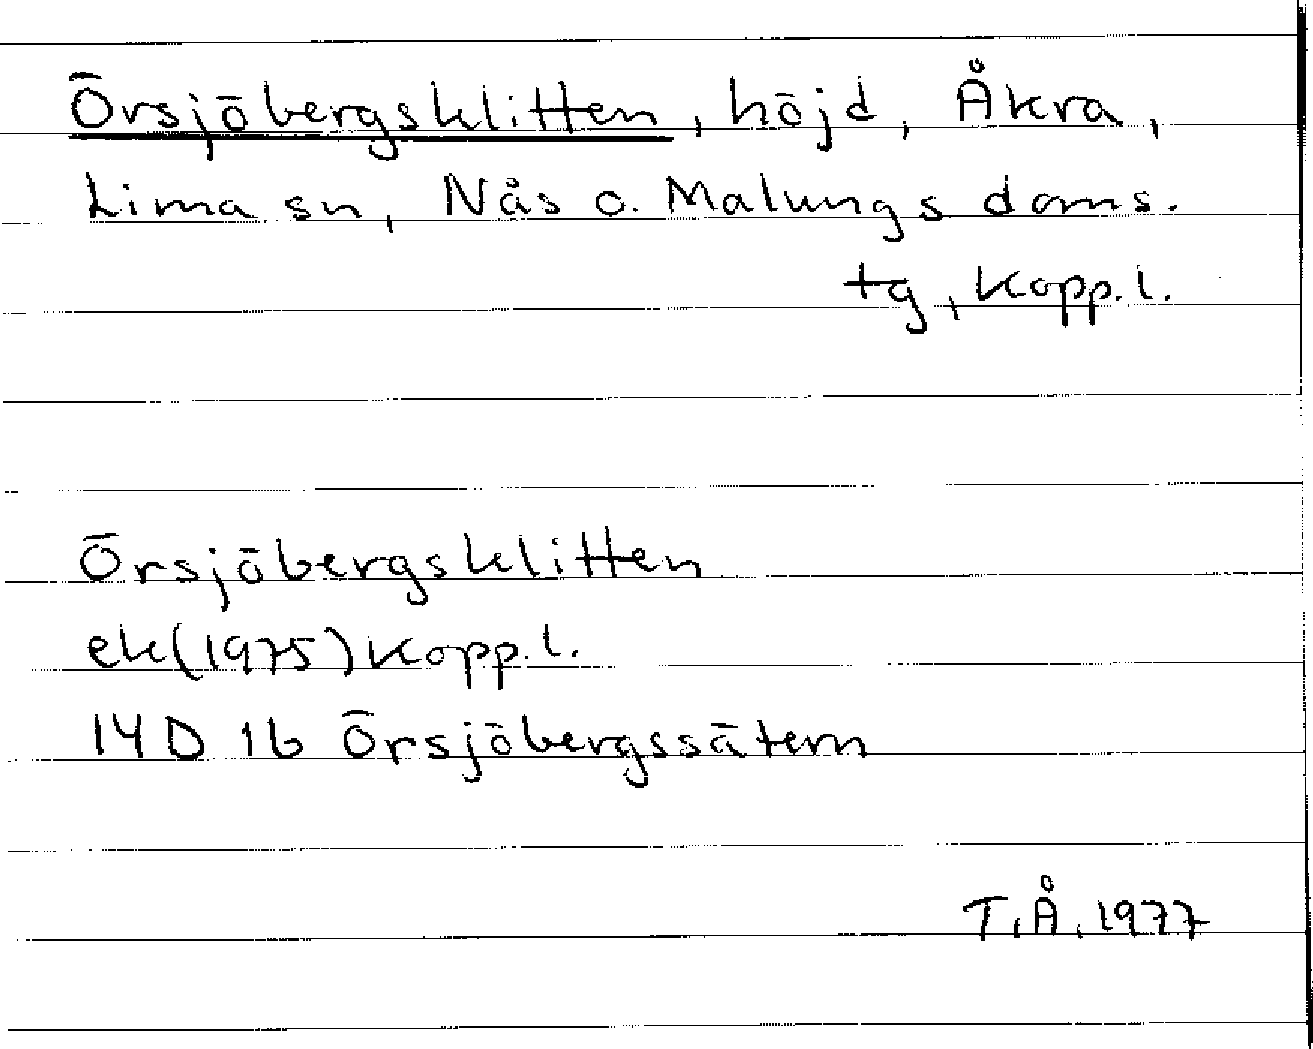 Örsjöbergsklitten, höjd, Åkra,
Lima sn, Nås o. Malungs doms.
tg, Kopp. l.
Örsjöbergsklitten
ek (1975) Kopp. l.
14 D 1b Örsjöbergssätern
T. Å. 1977